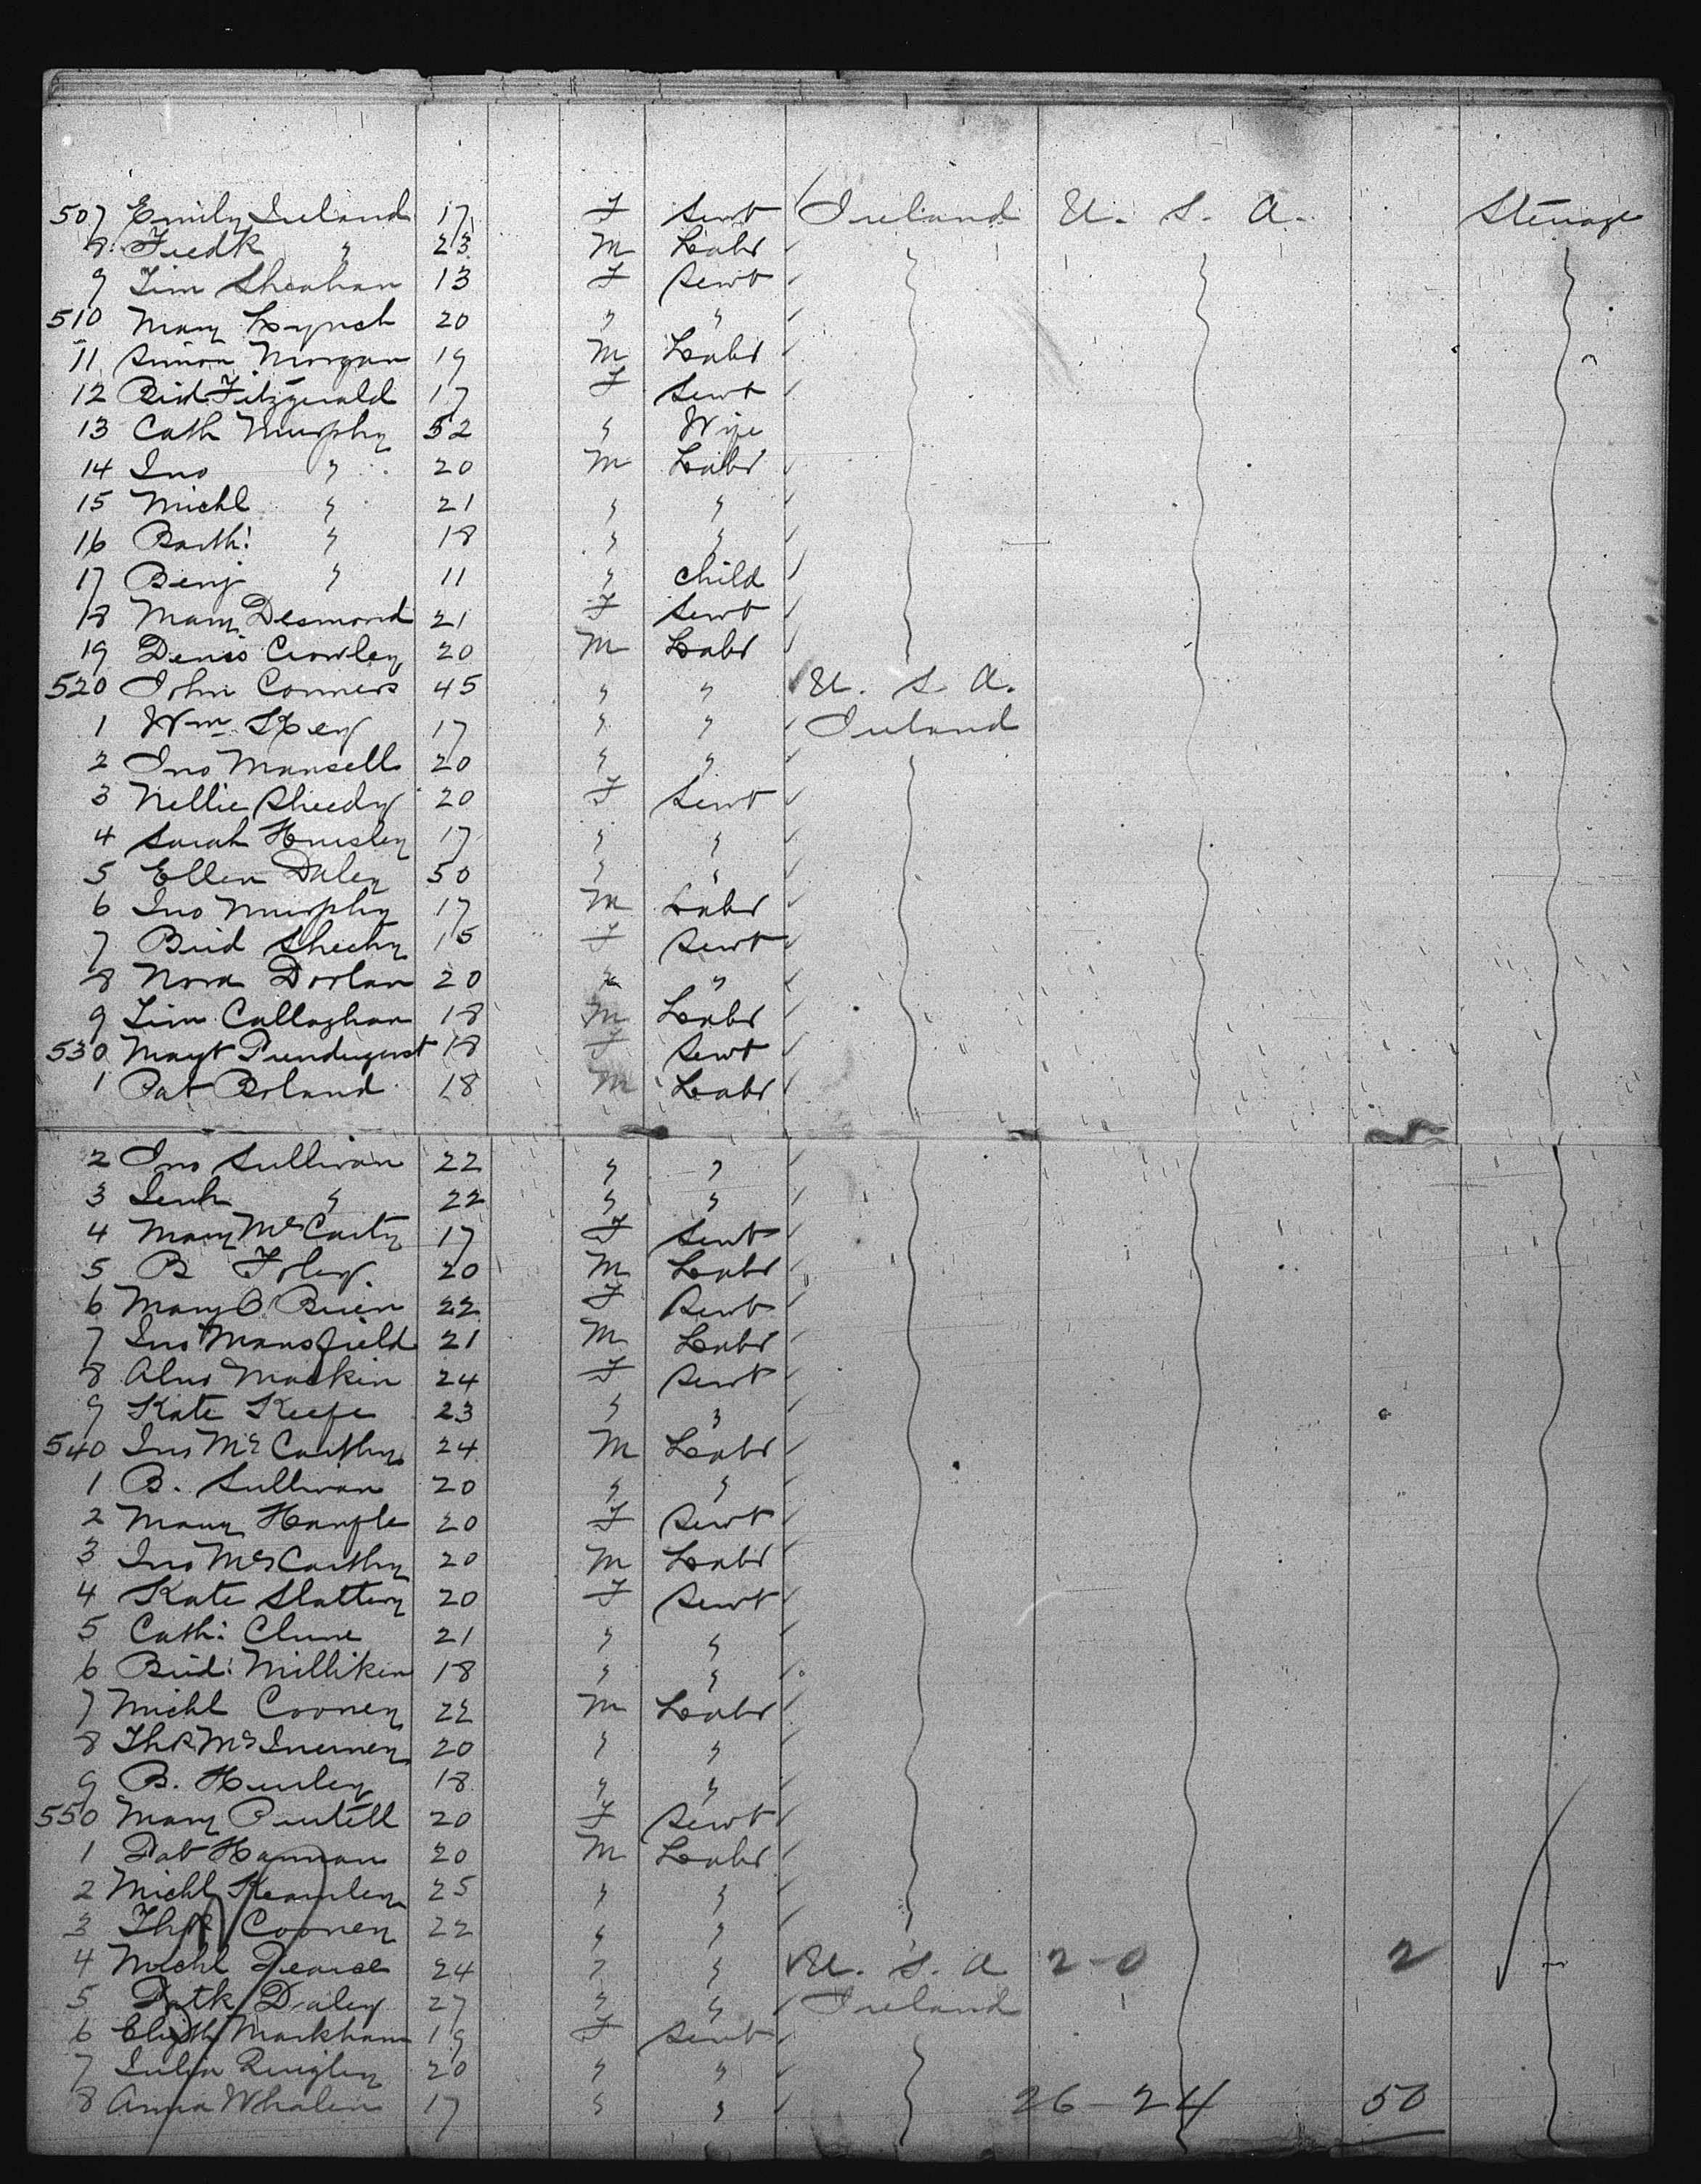 507 Emily Ireland 17 F Servt Ireland U. S. A. Steerage
8 Fredk " 23 M Labr
9 Tim Sheahan 13 F Servt
510 Mary Lynch 20 " "
11 Simon Morgan 19 M Labr
12 Brid Fitzgerald 17 F Servt
13 Cath Murphy 52 " Wife
14 Jno " 20 M Labr
15 Michl " 21 " "
16 Barth: " 18 " "
17 Benj " 11 " Child
18 Mary Desmond 21 F Servt
19 Denis Crowley 20 M Labr
520 John Conners 45 " " U. S. A.
1 Wm 17 " " Ireland
2 Jno Mansell 20 " "
3 Nellie Sheedy 20 F Servt
4 Sarah Hursley 17 " "
5 Ellen Daley 50 " "
6 Jno Murphy 17 M Labr
7 Brid Sheehy 15 F Servt
8 Nora Dorlan 20 " "
9 Tim Callaghan 18 M Labr
530 Magt Prendergast 18 F Servt
1 Pat Boland 18 M Labr
2 Jno Sullivan 22 " "
3 " 22 " "
4 Mary McCarty 17 F Servt
5 B Foley 20 M Labr
6 Mary O'Brien 22 F Servt
7 Jno Mansfield 21 M Labr
8 Mackin 24 F Servt
9 Kate Keefe 23 " "
540 Jno McCarthy 24 M Labr
1 B. Sullivan 20 " "
2 Mary 20 F Servt
3 Jno McCarthy 20 M Labr
4 Kate Slattery 20 F Servt
5 Cath: Clune 21 " "
6 Brid: Milliken 18 " "
7 Michl Cooney 22 M Labr
8 Ths McInerney 20 " "
9 B. Hurley 18 " "
550 Mary Purtell 20 F Servt
1 Pat Hannan 20 M Labr
2 Michl 25 " "
3 Ths Cooney 22 " "
4 Michl Pearce 24 " " U. S. A 2-0 2
5 Patk Daley 27 " " Ireland
6 Elizth Markham 19 F Servt
7 Julia Quigley 20 " "
8 Anna Whalen 17 " " 26-24 50